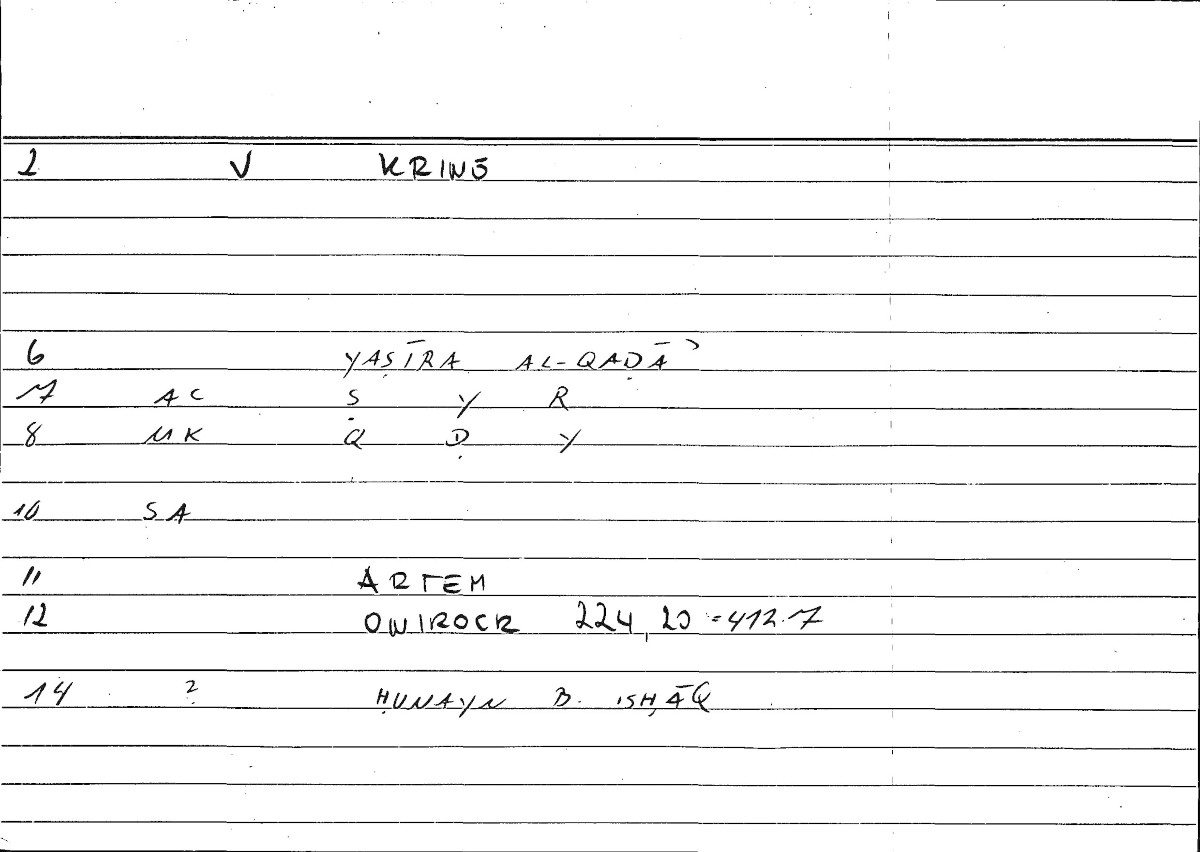 2 V KRINŌ
6 YAṢĪRA AL-QAḌĀʾ
7 AC Ṣ Y R
8 MK Q Ḍ Y
10 SA
11 ARTEM
12 ONIROCR 224,20 = 412.7
14 ? ḤUNAYN B. ISḤĀQ